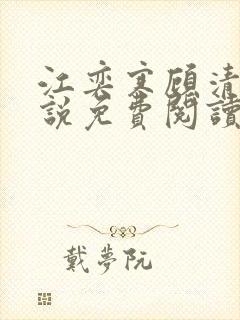 江奕寒顧清
說免費閱讀
戴夢阮